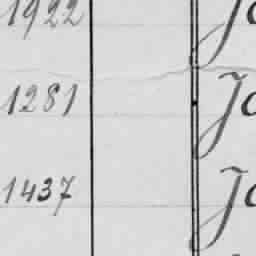 1922 Jo
1281 Jo
1437 Jo